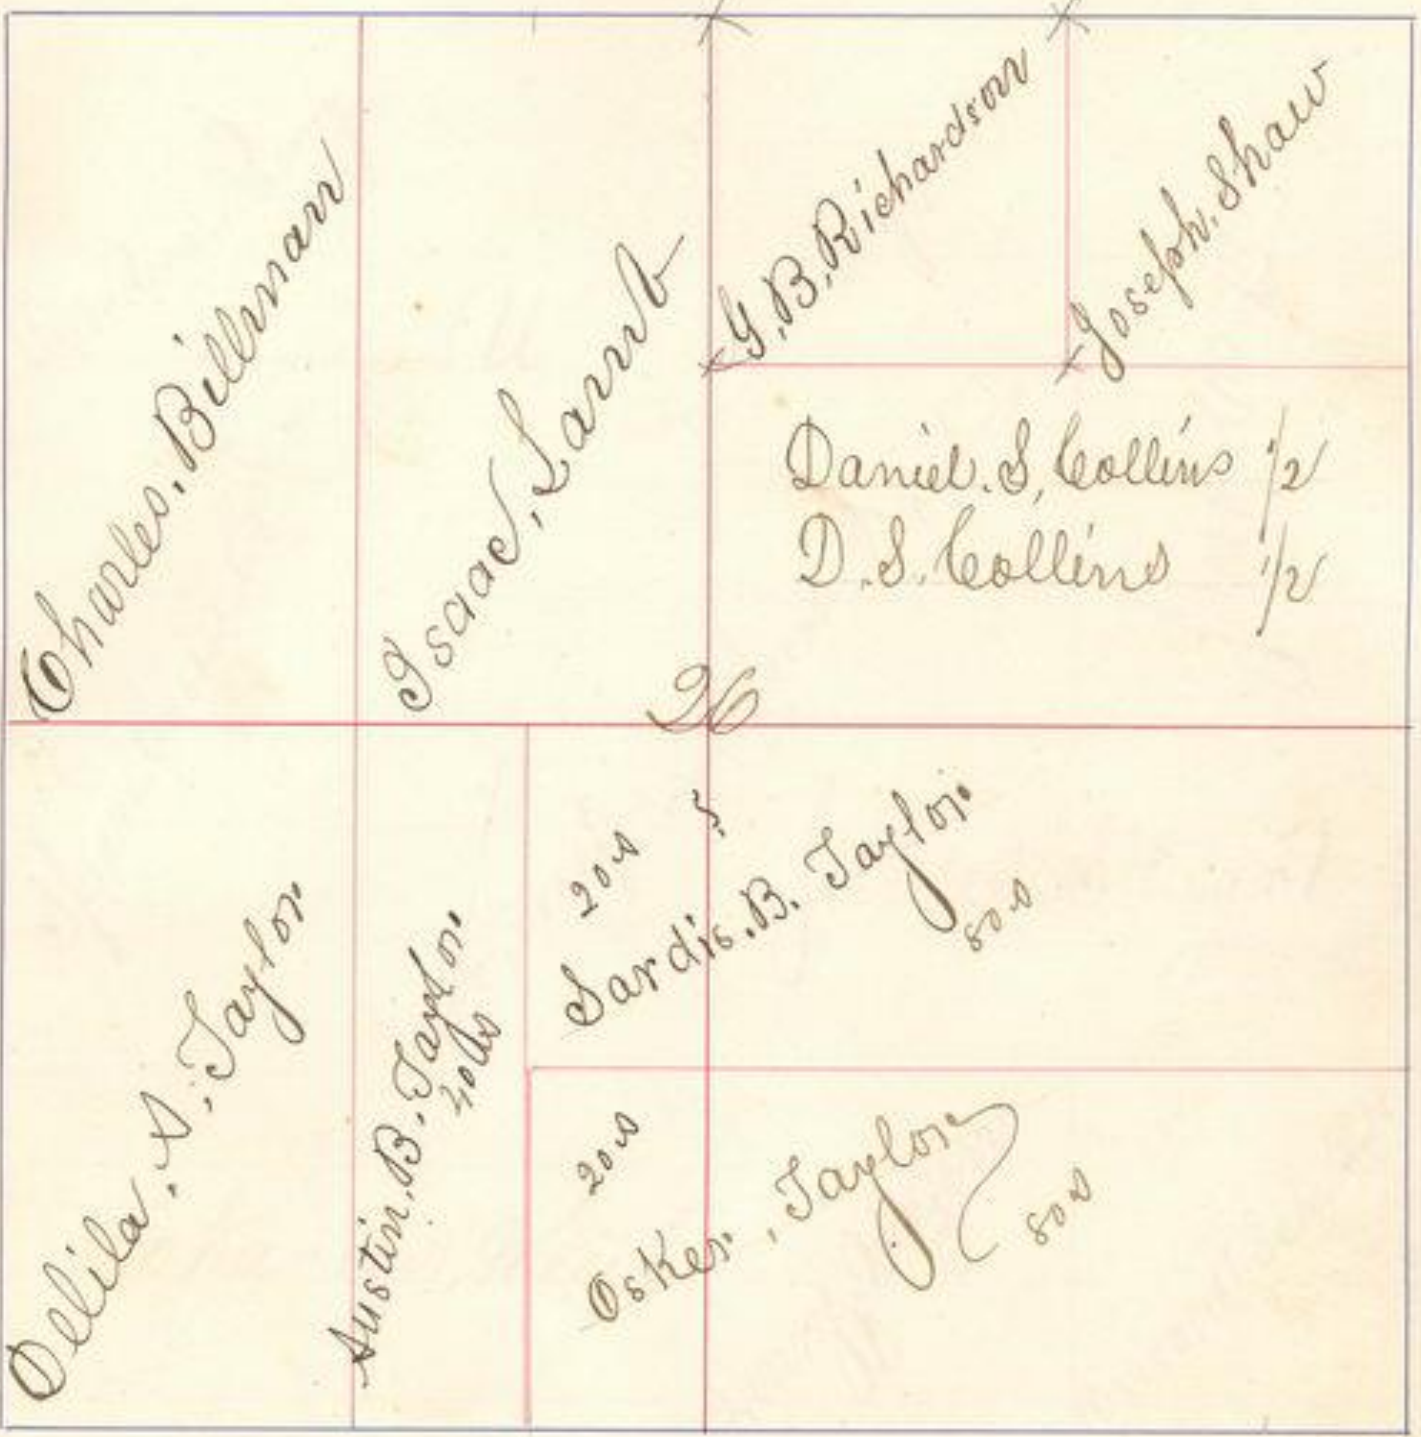 Charles. Billman
Isaac, Lamb
G. B. Richardson
Joseph. Shaw
Daniel. S, Collins 1/2
D. S. Collins 1/2
26
Delila. A. Taylor
Austin. B. Taylor
40 As
20 A
Sardis. B. Taylor
80 A
20 A
Osker. Taylor
80 A